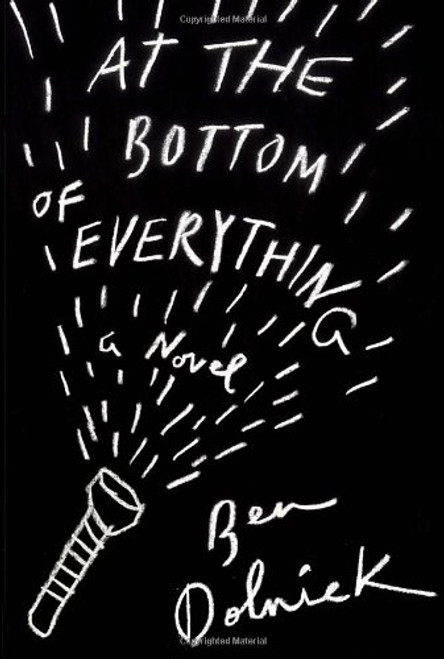 Copyrighted Material
AT THE
BOTTOM
OF
EVERYTHING
a Novel
Ben
Dolnick
Copyrighted Material